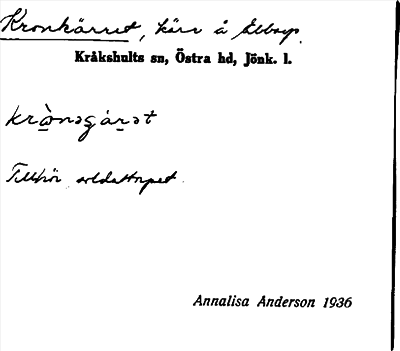 Kronkärret, kärr å Ebbarp.
Kråkshults sn, Östra hd, Jönk. l.
krὰ̱nəgáṟət
Tillhör soldattorpet.
Annalisa Anderson 1936